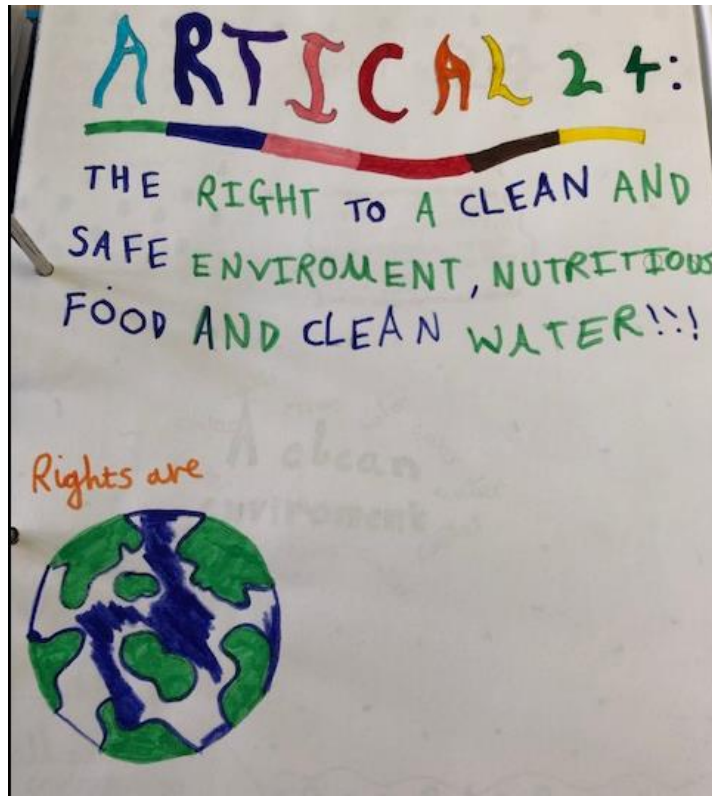 ARTICAL 24:
THE RIGHT TO A CLEAN AND
SAFE ENVIROMENT, NUTRITIOUS
FOOD AND CLEAN WATER!!!
A clean
enviroment
Rights are